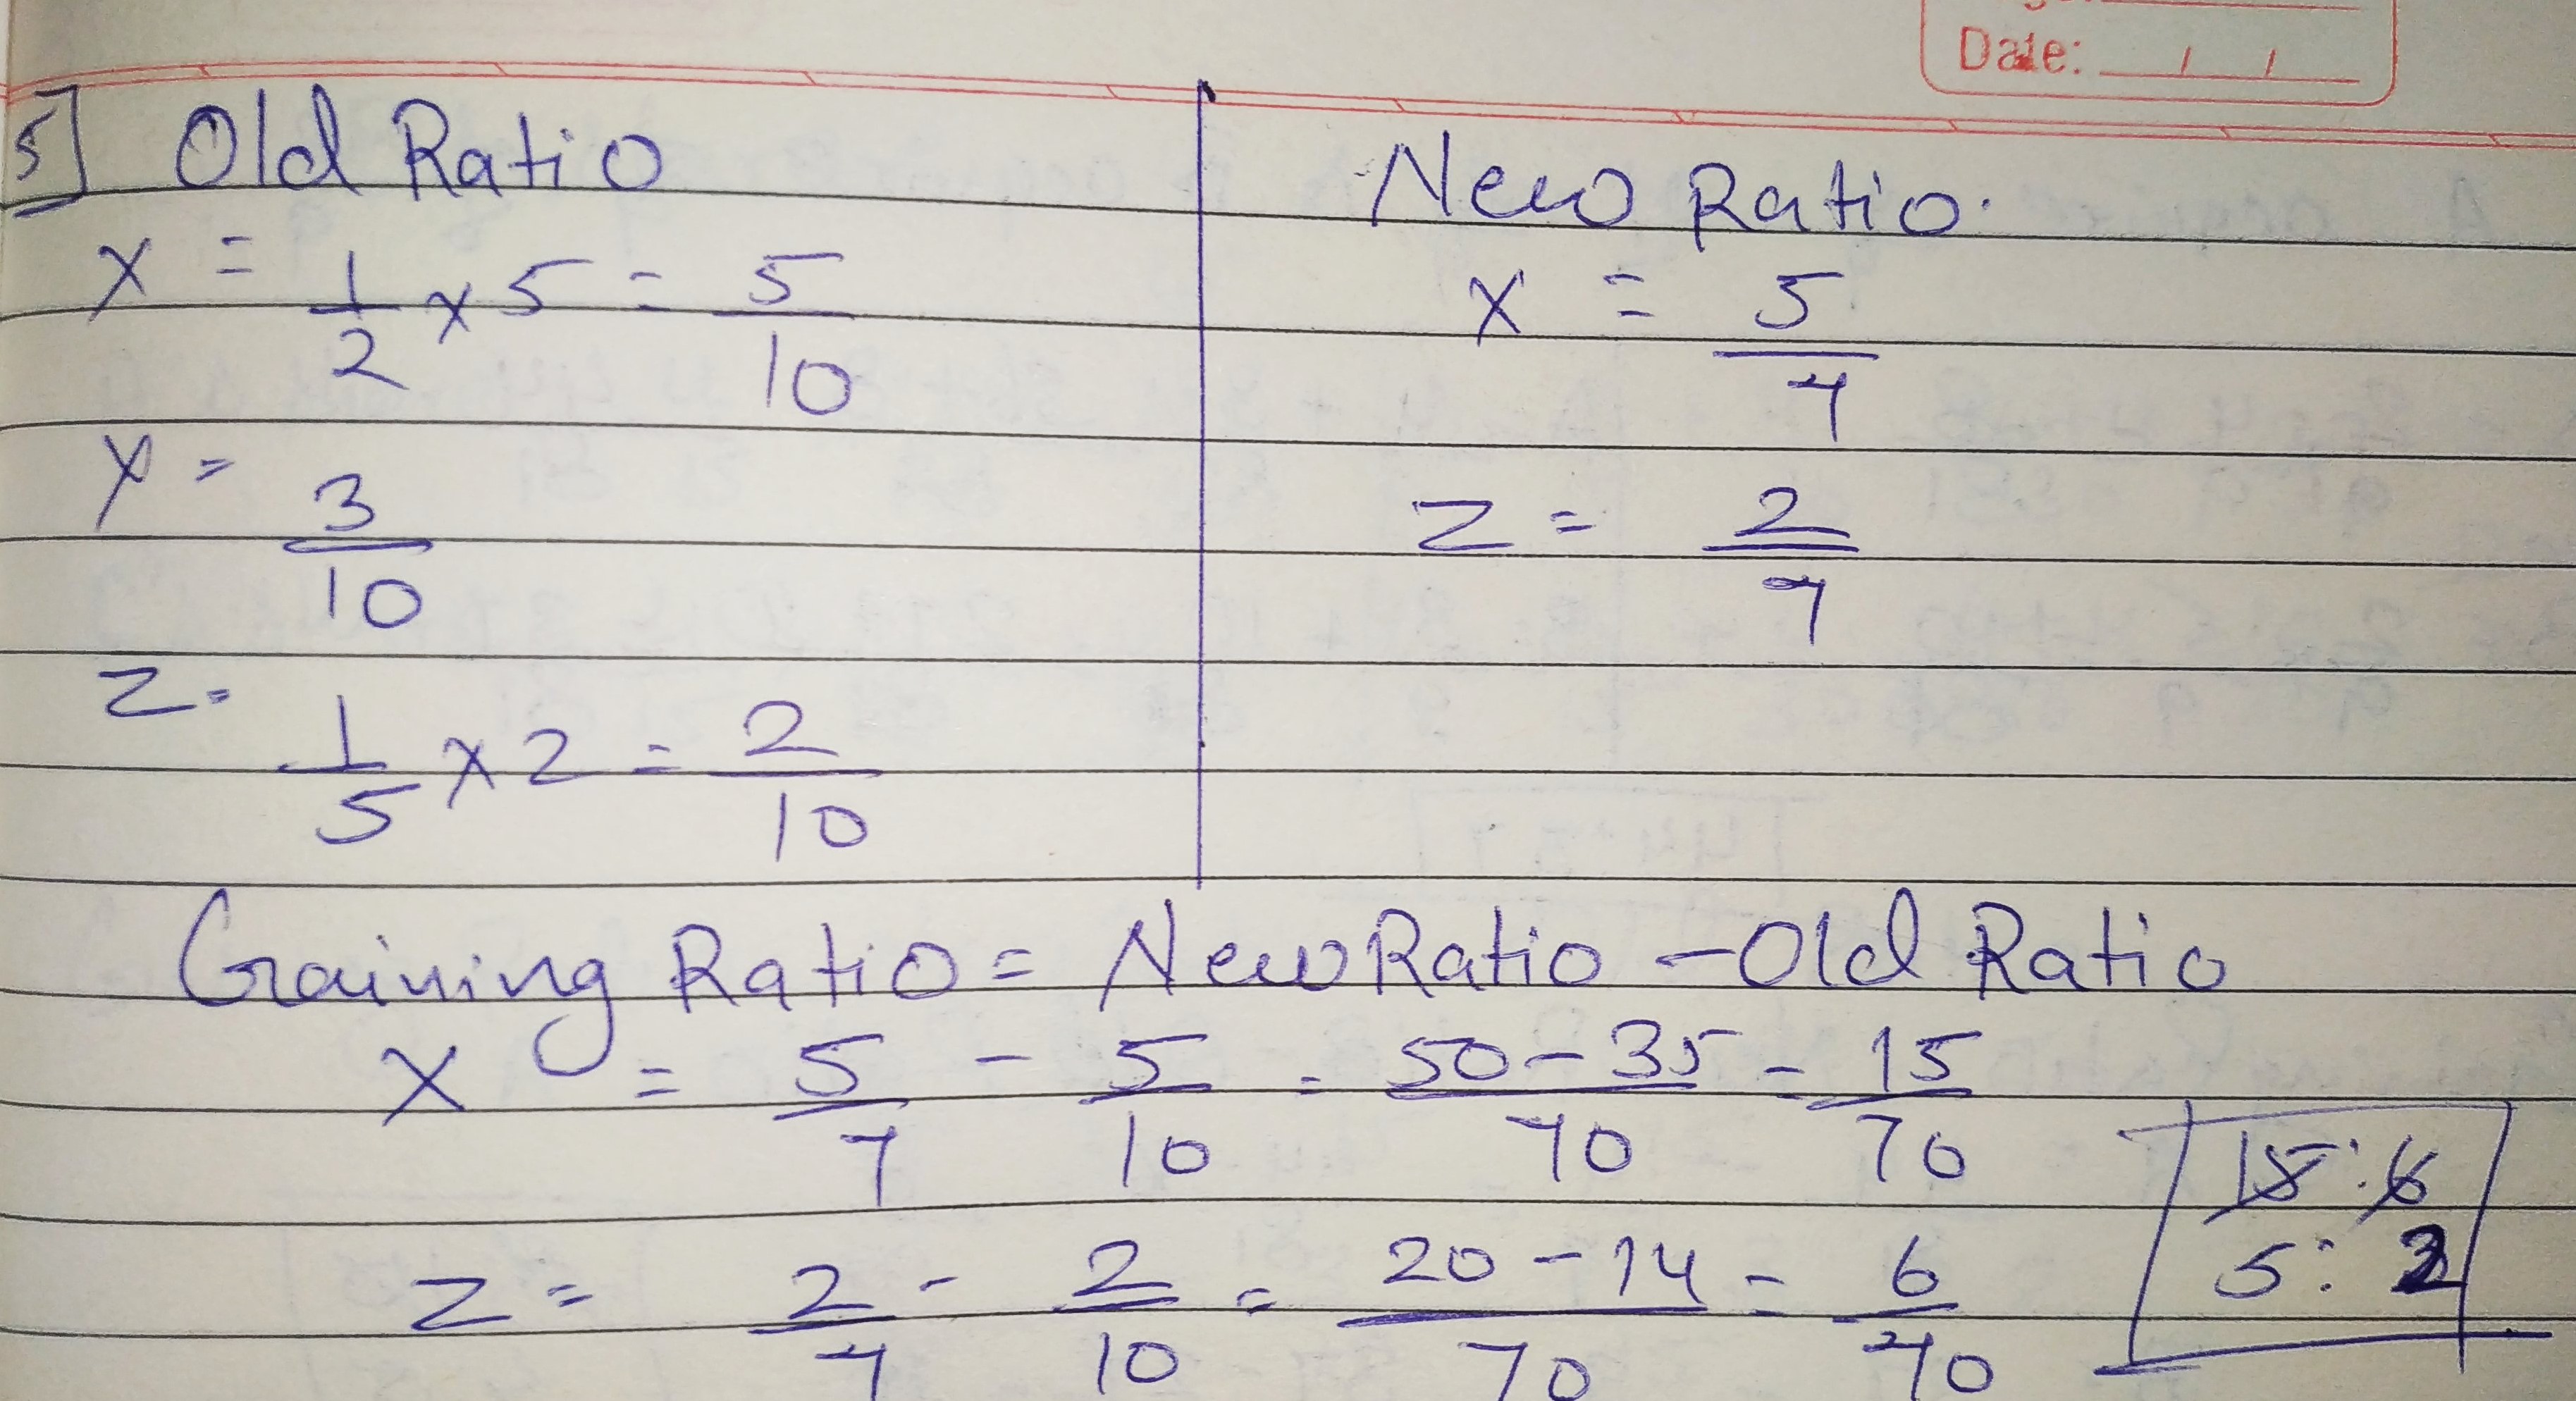 Date: / /
5] Old Ratio
x = 1/2 x 5 = 5/10
y = 3/10
z = 1/5 x 2 = 2/10
New Ratio.
x = 5/7
z = 2/7
Gaining Ratio = New Ratio - Old Ratio
x = 5/7 - 5/10 = 50-35/70 = 15/70
z = 2/7 - 2/10 = 20-14/70 = 6/70
15:6
5:2